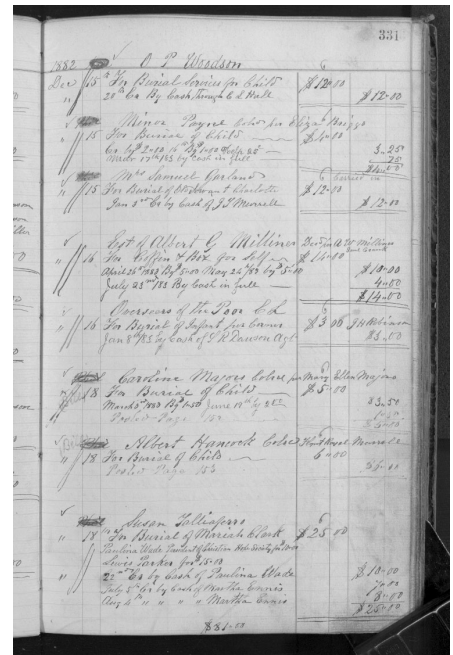 331
1882 O P Woodson
Dec 15 For Burial Services for Child $12-00
20th Cr By Cash through C L Hall $12-00
Minor Payne Eliza Briggs
15 For Burial of Child $4-00
3-25
75
17th 1883 by Cash in full $4-00
Mrs Samuel Garland
15 For Burial of Charlotte $12-00
Jan 2nd Cr by Cash of J T Murrell $12-00
Est of Albert G Milliner
16 For Coffin & Box for Self $14-00
April 26th 1883 By 5-00 May 26th 83 by 5-00 $10-00
July 23rd 1883 By Cash in full 4-00
$14-00
Overseers of the Poor C L
16 For Burial of Infant $3 00
Jan 8th 83 by Cash of Dawson Agt $3-00
Caroline Majors Colred per Mary Ellen Majors
18 For Burial of Child $5-00
March 3rd 1883 By 1-50 $3-50
Posted Page 153
Albert Hancock Colred
18 For Burial of Child 6-00
Posted Page 153 $6-00
Susan Talliaferro
18 For Burial of Mariah Clark $25-00
Paulina Wade President of Christian
Lewis Parker for 15-00
22nd Cr by Cash of Paulina Wade $10-00
July 5th Cr by Cash of Martha Ennis 7-00
Aug 4th " " " " Martha Ennis 8-00
$25-00
$81-00